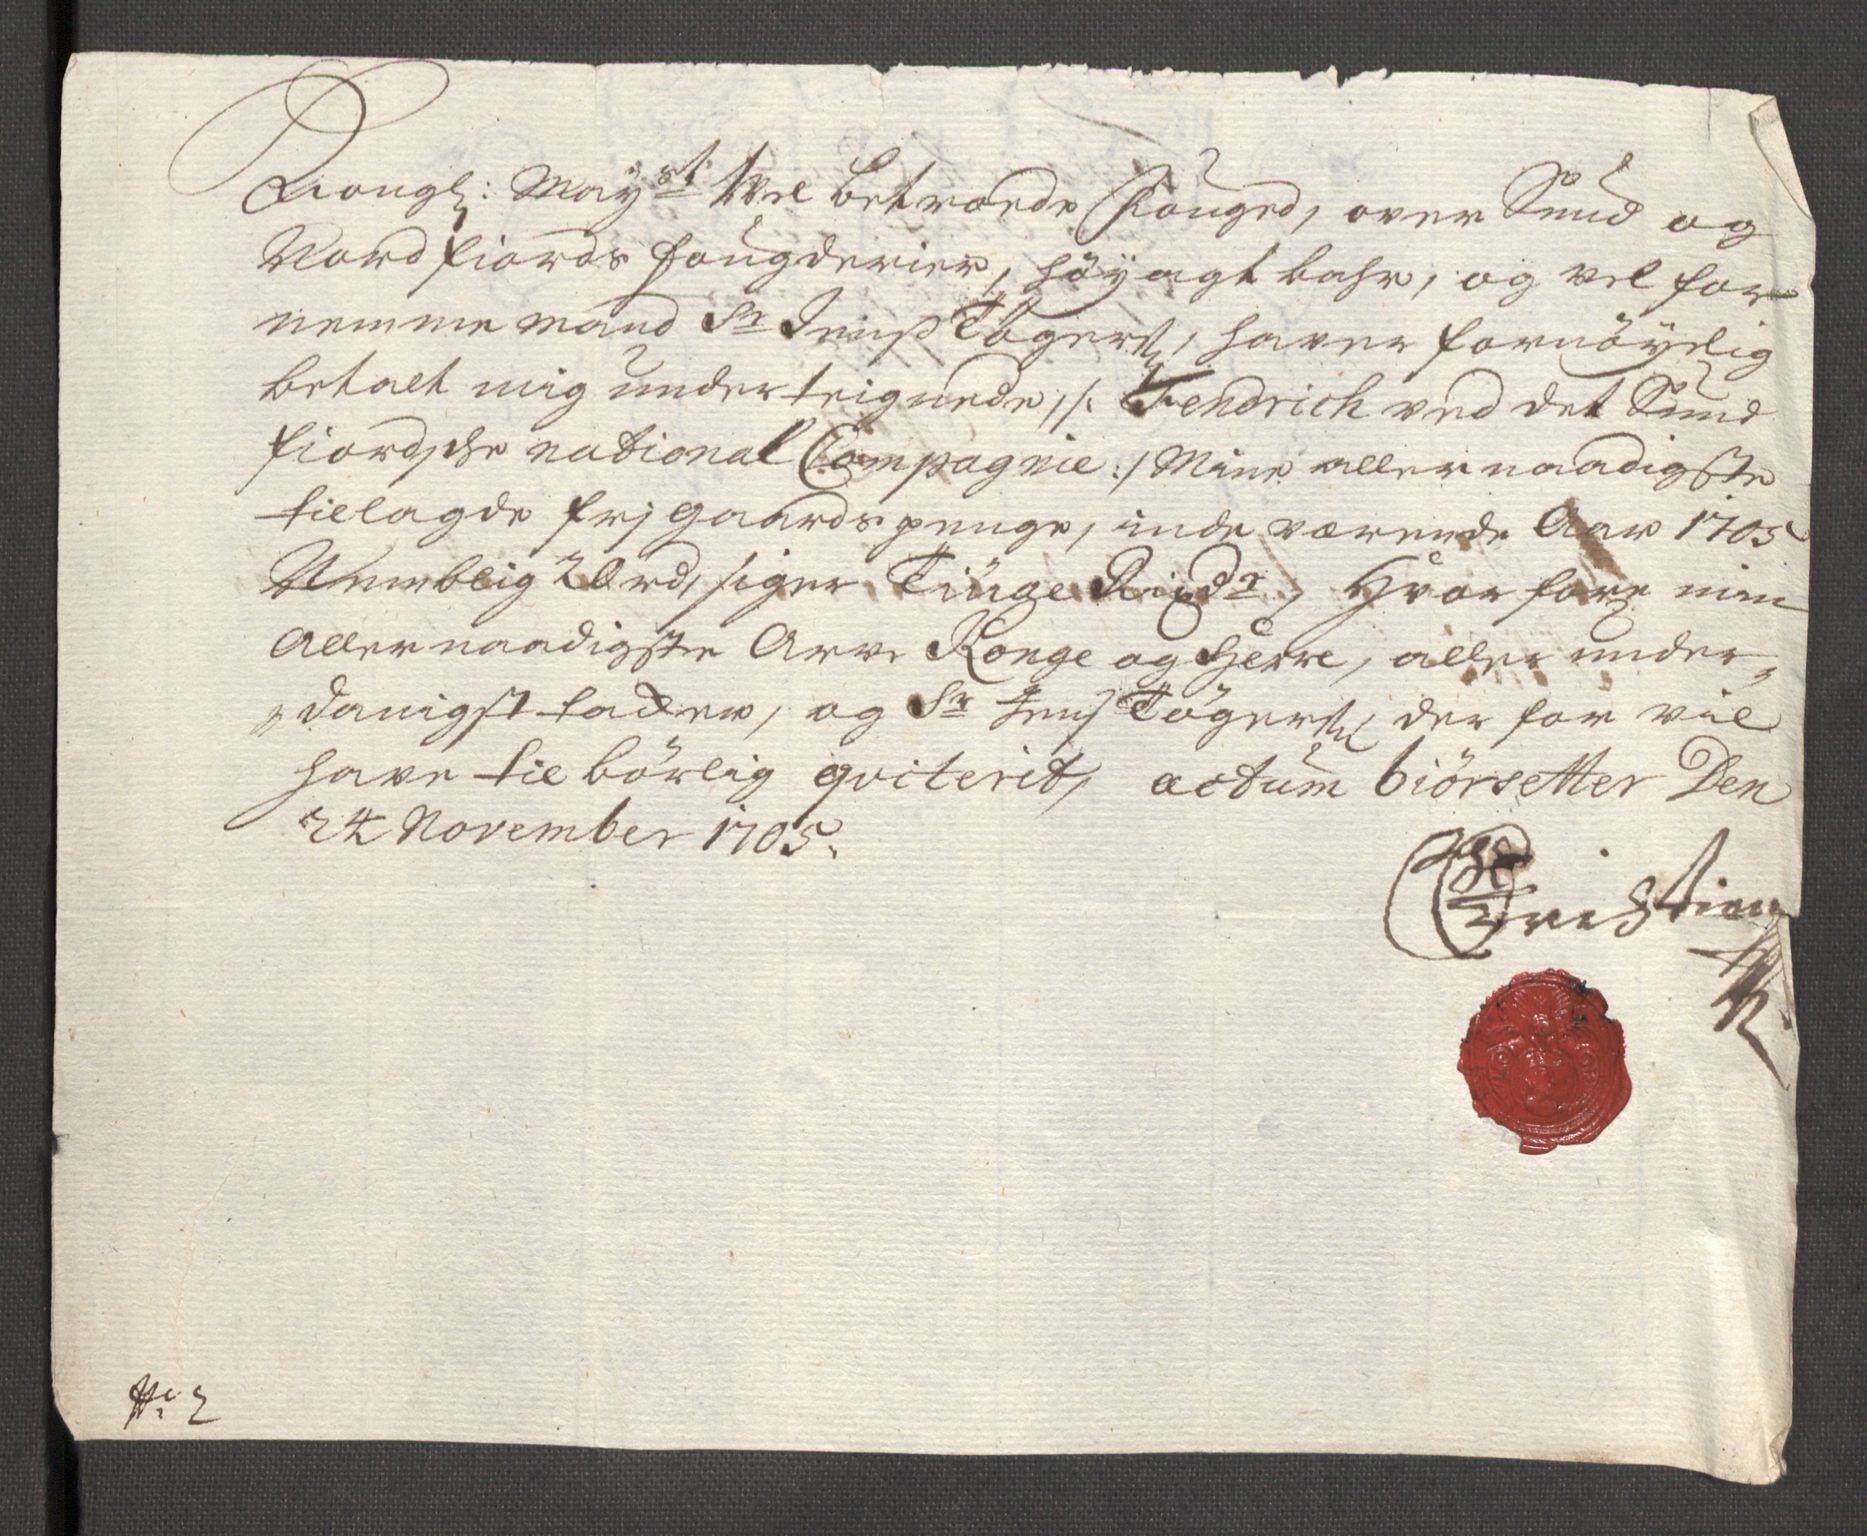 Kongl: May.st Wel betroede Fouged, over Sund og
Nordfiords fougderier, höyagtbahr, og vel for
nemme mand Sr Jenß Tögers, haver fornöyelig
betalt mig underteignede, /: Fendrich ved det Sund
fiordsche national Compagnie :/ Mine allernaadigste
tillagde frj gaards penge, inde værende Aar 1705
Nemblig 20 rd, siger Tiuge Rixdr, Hvor fore min
Allernaadigste Arve Konge og Herre, aller under,,
,,danigst tackes, og Sr Jens Tögers, der for vil
have tilbörlig qviterit, actum biörsetter Den
24 November 1705.
Christian
No: 2